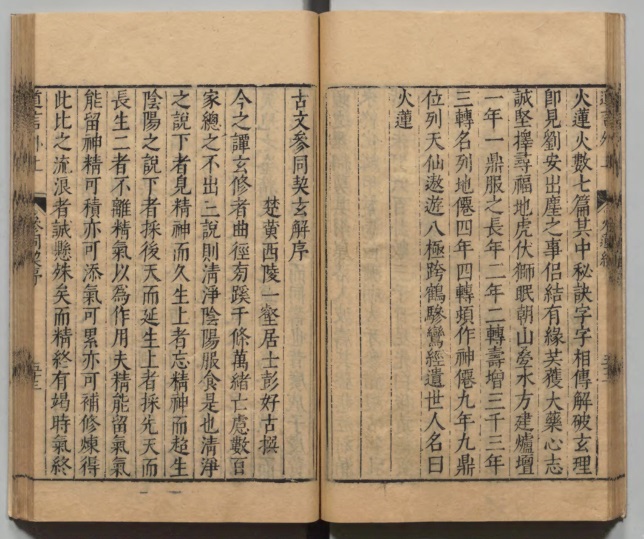 火蓮火數七篇其中秘訣字字相傳解破玄理
即見劉安出塵之事侶結有緣芺獲大藥心志
誠堅擇尋福地虎伏獅眠朝山旁水方建爐壇
一年一鼎服之長年二年二轉壽增三千三年
三轉名列地僊四年四轉頻作神僊九年九鼎
位列天仙遨遊八極跨鶴驂鸞經遺世人名曰
火蓮
古文參同契玄解序
楚黃西陵一壑居士彭好古撰
今之譚玄修者曲徑旁蹊千條萬緒亡慮數百
家總之不出三說則清淨陰陽服食是也清淨
之說下者見精神而久生上者忘精神而超生
陰陽之說下者採後天而延生上者採先天而
長生二者不離精氣以為作用夫精能留氣氣
能留神精可積亦可添氣可累亦可補修煉得
此比之流浪者誠懸殊矣而精終有竭時氣終
道言外
參同契序